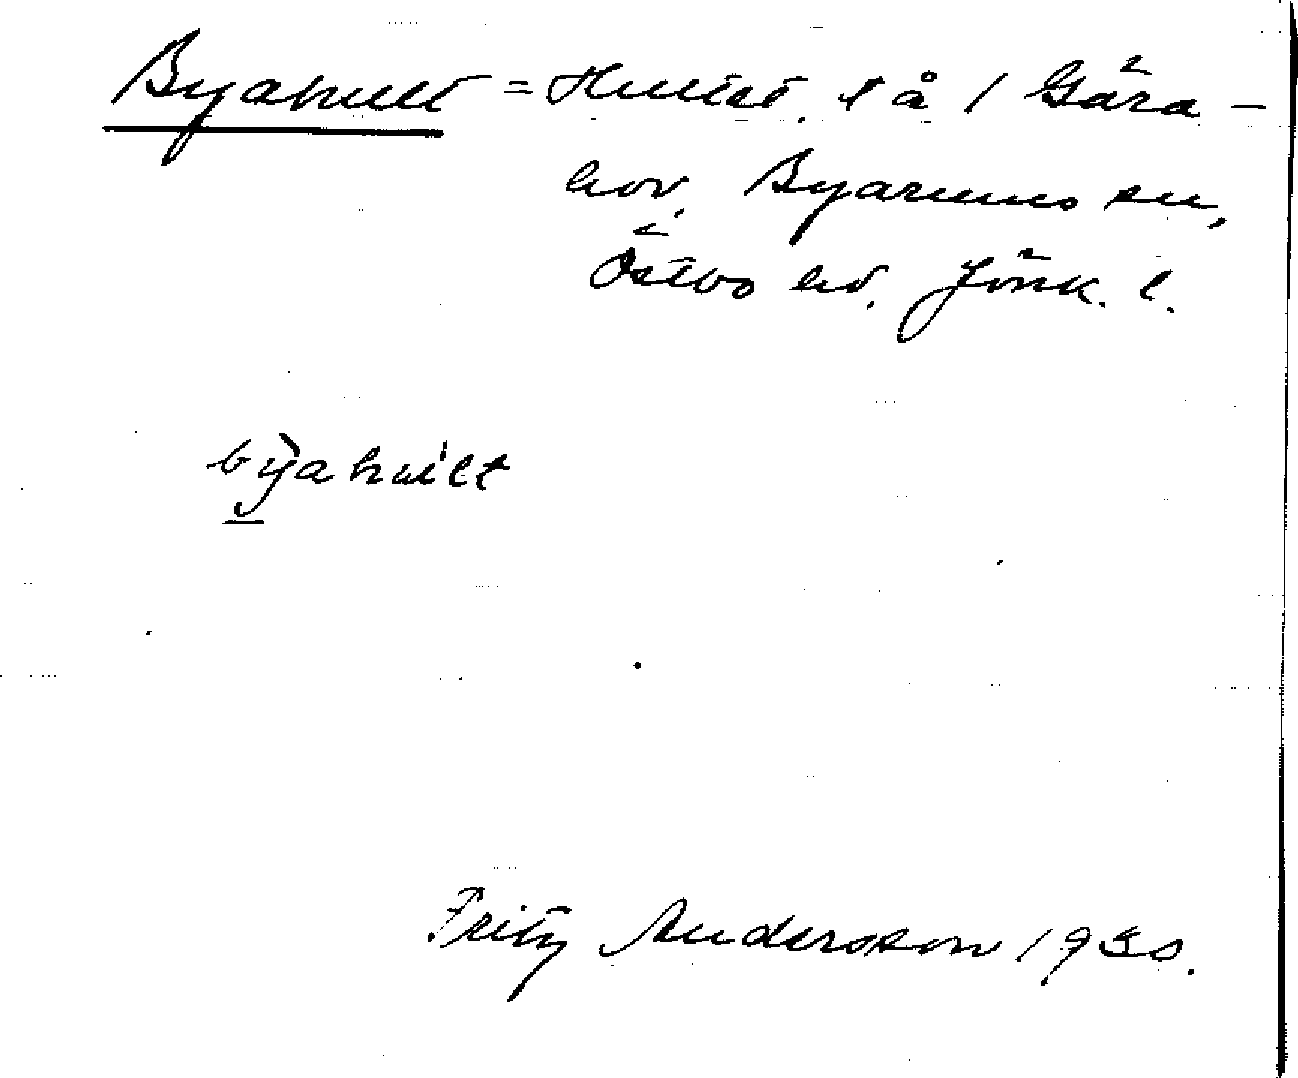 Byahult = Hultet. l å 1 Gära-
hov. Byarums sn,
Östbo hd. Jönk. l.
byahult
Fritz Andersson 1930.